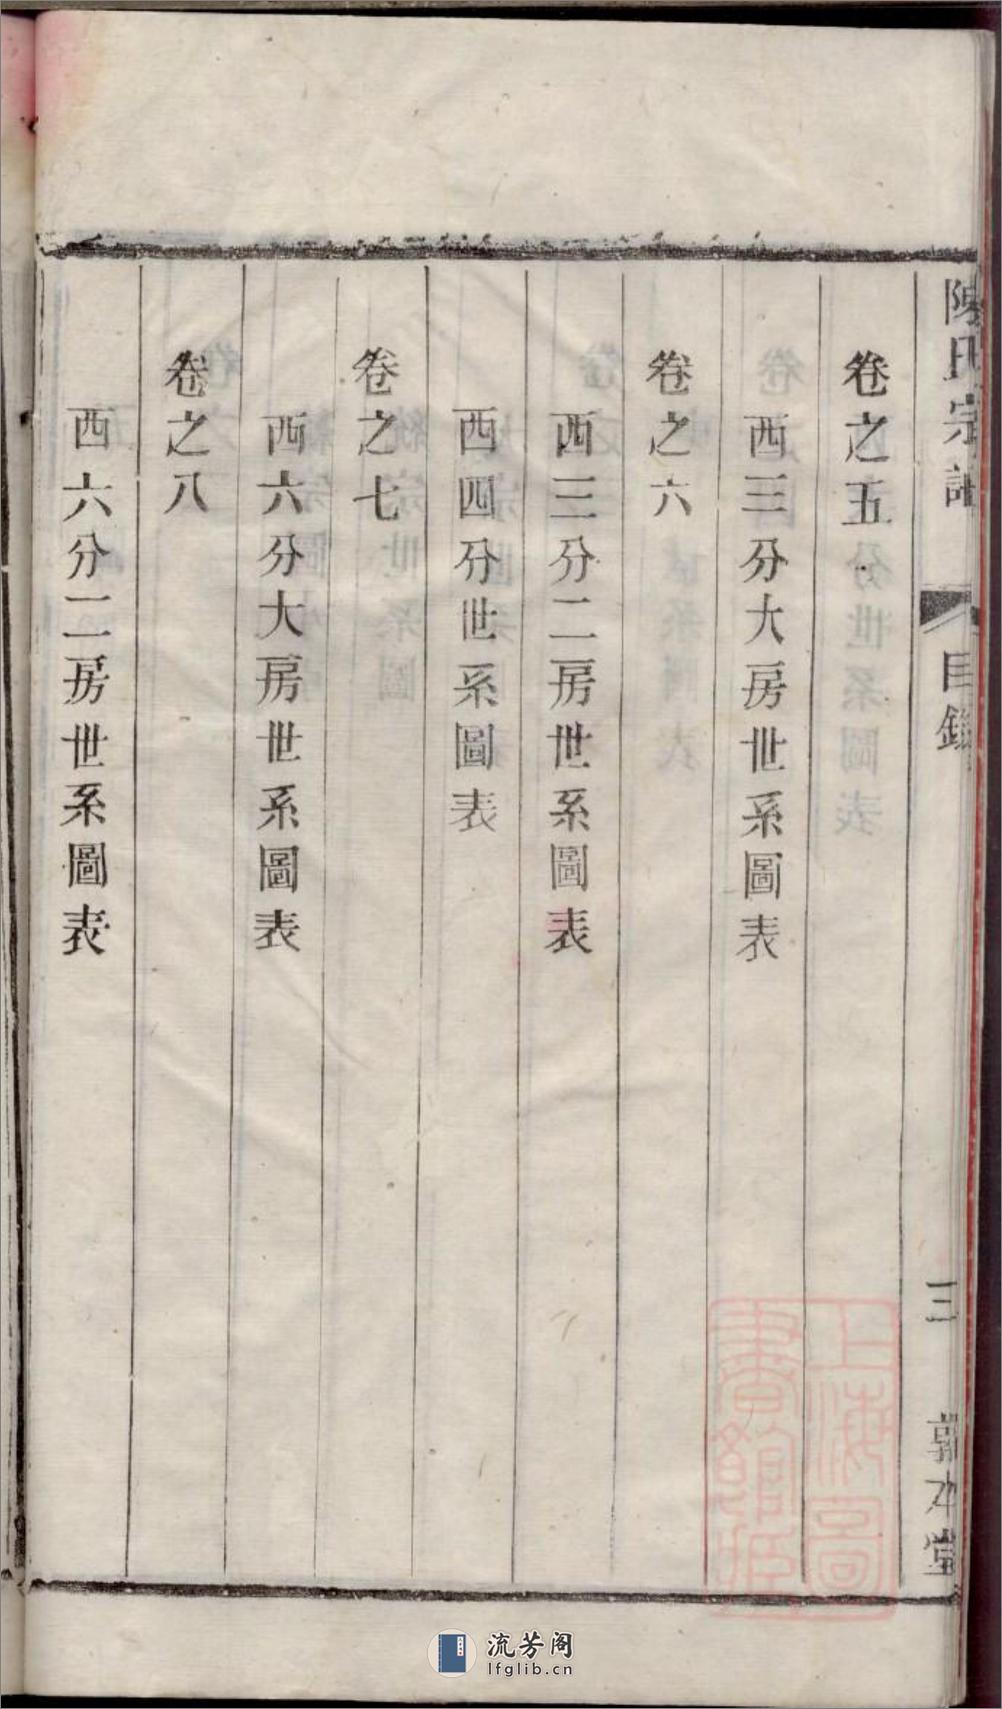 陳氏宗譜
目錄
三
卷之五
西三分大房世系圖表
卷之六
西三分二房世系圖表
西四分世系圖表
卷之七
西六分大房世系圖表
卷之八
西六分二房世系圖表
上海圖
書館藏
流芳阁
lfglib.cn